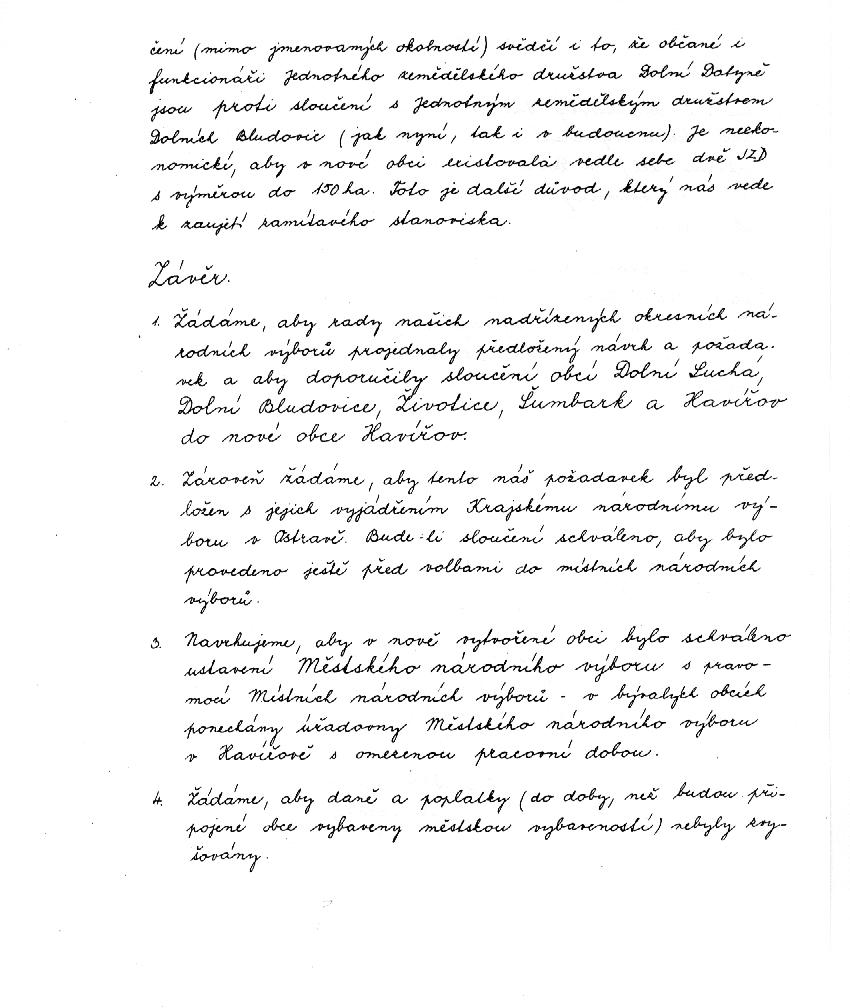 čení (mimo jmenovaných okolností) svědčí i to, že občané i
funkcionáři Jednotného zemědělského družstva Dolní Datyně
jsou proti sloučení s Jednotným zemědělským družstvem
Dolních Bludovic (jak nyní, tak i v budoucnu). Je neeko-
nomické, aby v nové obci existovala vedle sebe dvě JZD
s výměrou do 150 ha. Toto je další důvod, který nás vede
k zaujetí zamítavého stanoviska.
Závěr.
1. Žádáme, aby rady našich nadřízených okresních ná-
rodních výborů projednaly předložený návrh a požada-
vek a aby doporučily sloučení obcí Dolní Suchá,
Dolní Bludovice, Životice, Šumbark a Havířov
do nové obce Havířov.
2. Zároveň žádáme, aby tento náš požadavek byl před-
ložen s jejich vyjádřením Krajskému národnímu vý-
boru v Ostravě. Bude-li sloučení schváleno, aby bylo
provedeno ještě před volbami do místních národních
výborů.
3. Navrhujeme, aby v nově vytvořené obci bylo schváleno
ustavení Městského národního výboru s pravo-
mocí Místních národních výborů - v bývalých obcích
ponechány úřadovny Městského národního výboru
v Havířově s omezenou pracovní dobou.
4. Žádáme, aby daně a poplatky (do doby, než budou při-
pojené obce vybaveny městskou vybaveností) nebyly zvy-
šovány.